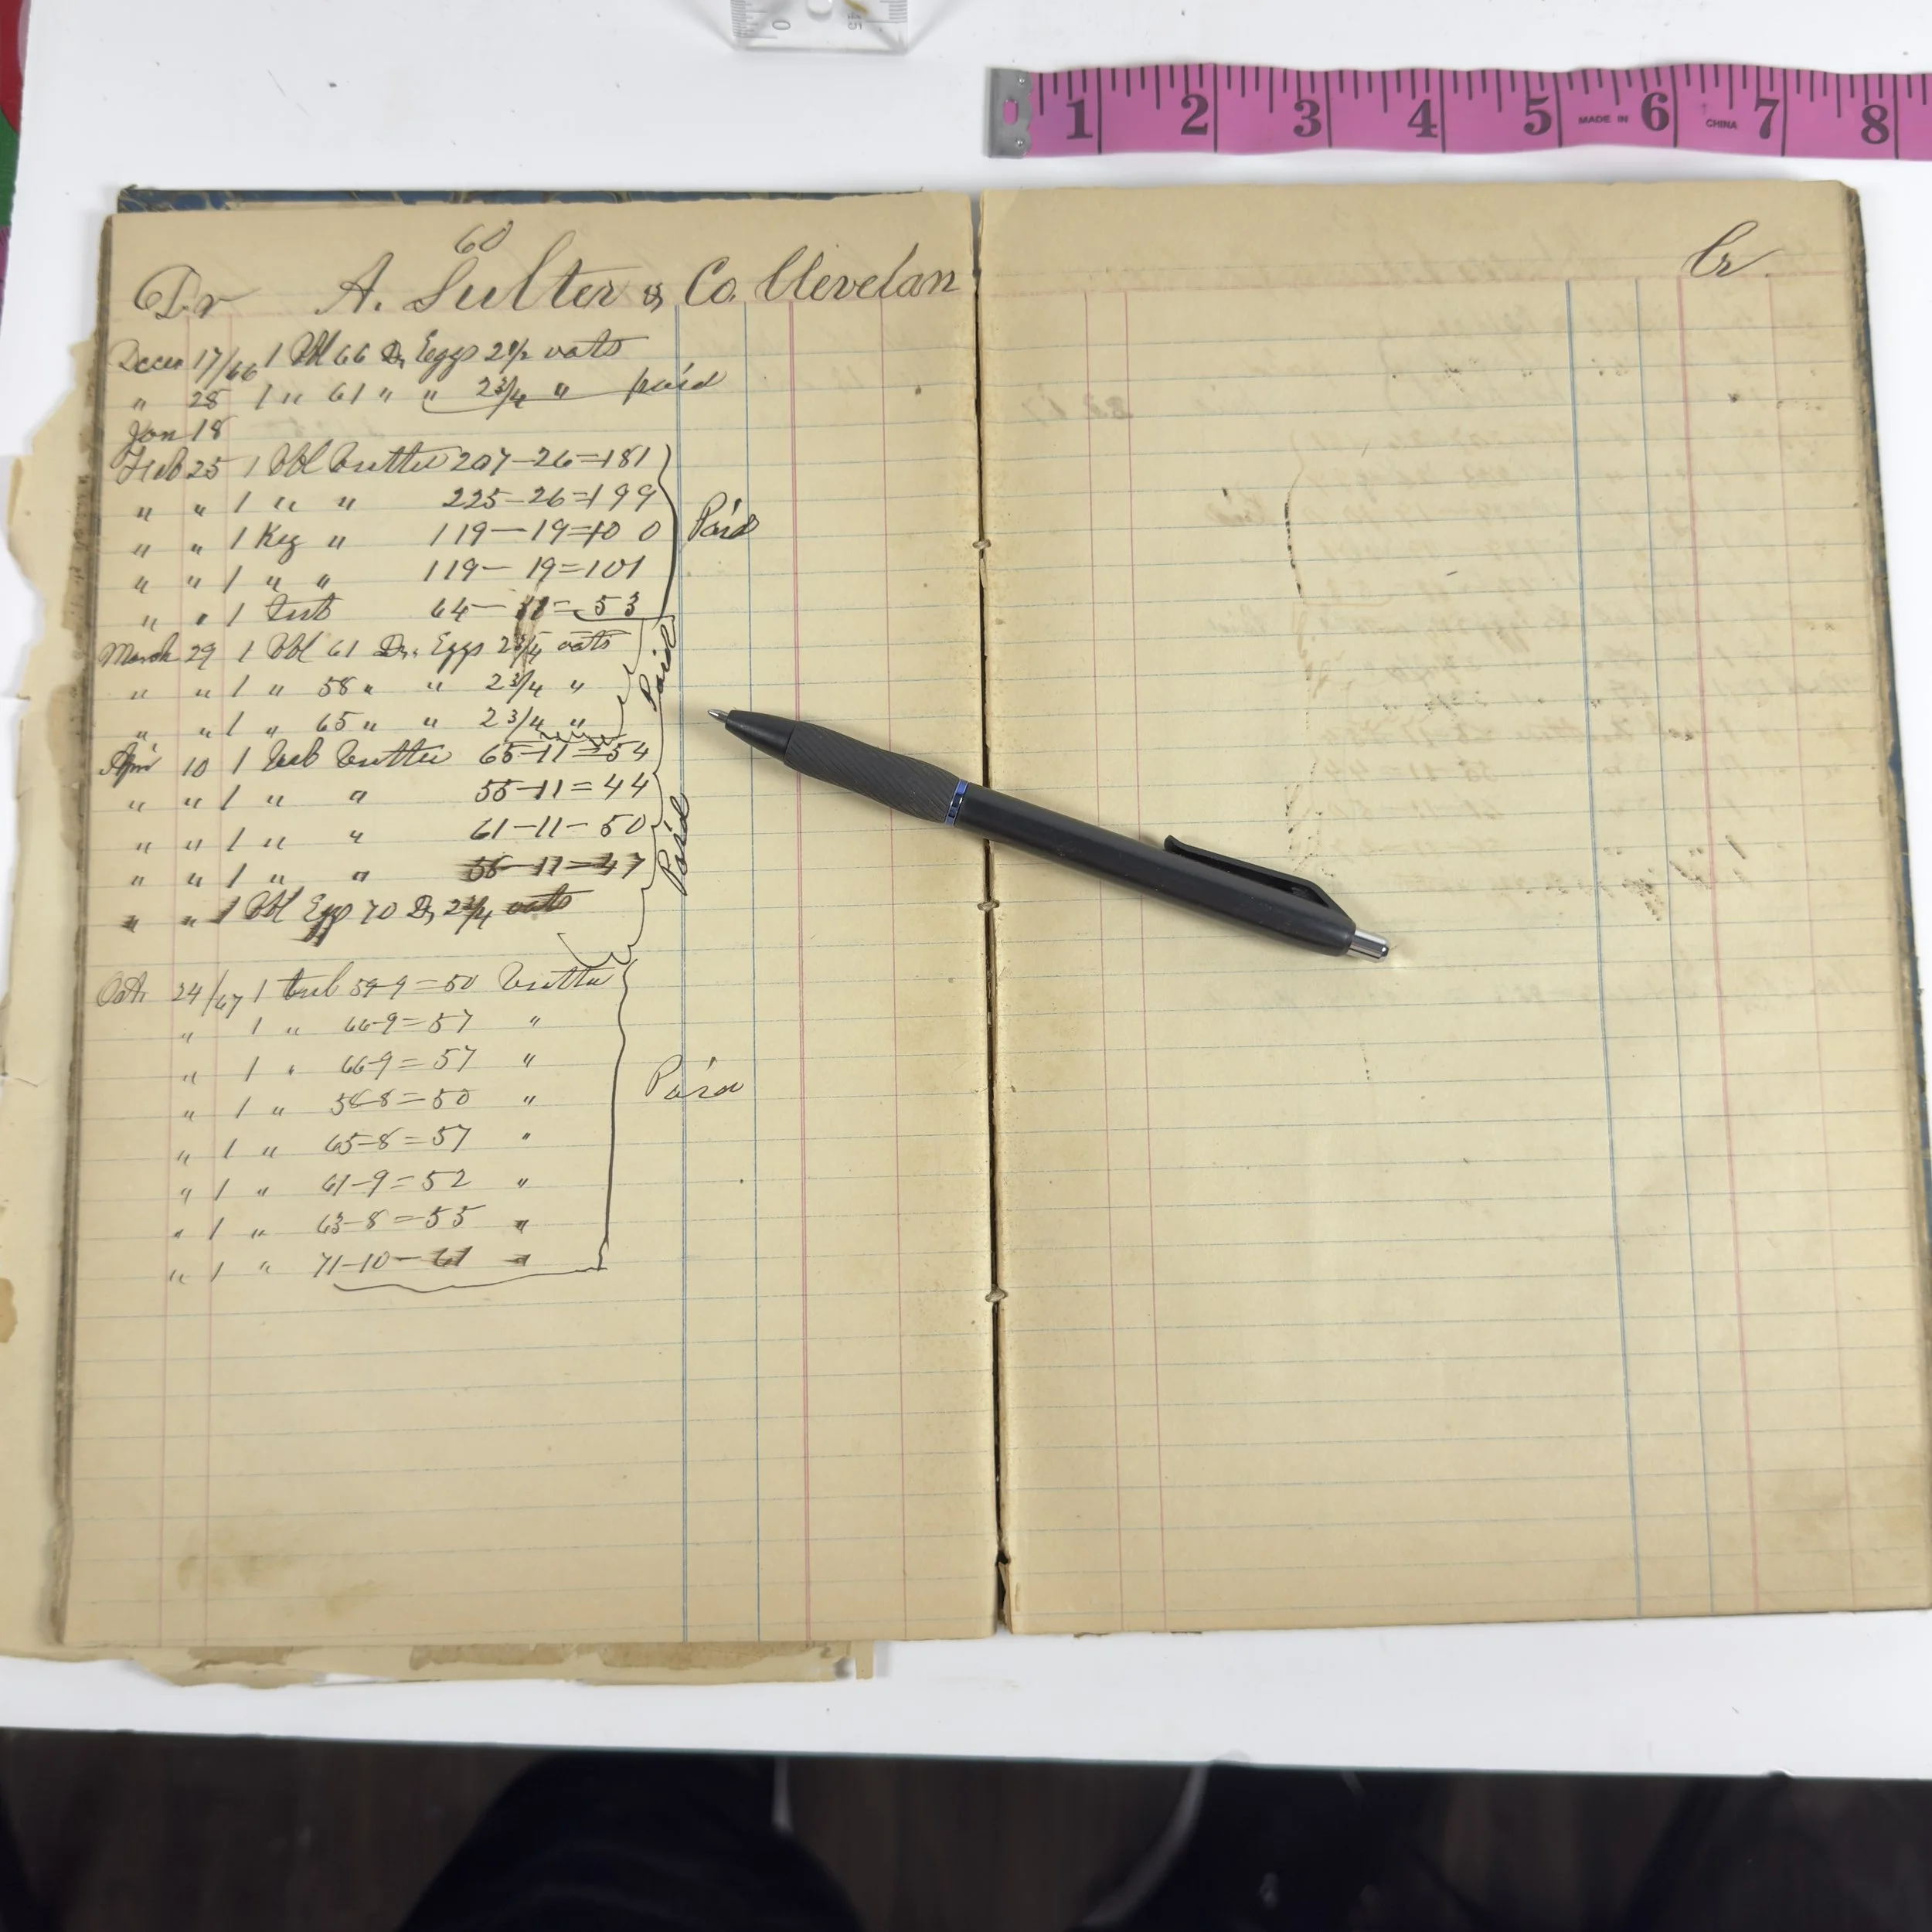 0 45
1 2 3 4 5 MADE IN 6 CHINA 7 8
60
Dr A. Sulter & Co. Clevelan
Cr.
Decem 17/66 1 Bbl 66 Dz Eggs 2 1/2 oats
" 28 1 " 61 " " 2 3/4 " paid
Jan 18
Feb 25 1 Bbl Butter 207-26=181
" " 1 " " 225-26=199
" " 1 Keg " 119-19=100
Paid
" " 1 " " 119-19=101
" " 1 tub 64-11=53
March 29 1 Bbl 61 Dz. Eggs 2 3/4 oats
" " 1 " 58 " " 2 3/4 "
Paid
" " 1 " 65 " " 2 3/4 "
Apr 10 1 tub Butter 65-11=54
" " 1 " " 55-11=44
" " 1 " " 61-11-50
Paid
" " 1 " " 58-11=47
" " 1 Bbl Eggs 70 Dz 2 3/4 oats
Oct. 24/67 1 tub 59-9=50 Butter
" 1 " 66-9=57 "
" 1 " 66-9=57 "
" 1 " 58-8=50 "
Paid
" 1 " 65-8=57 "
" 1 " 61-9=52 "
" 1 " 63-8=55 "
" 1 " 71-10-61 "